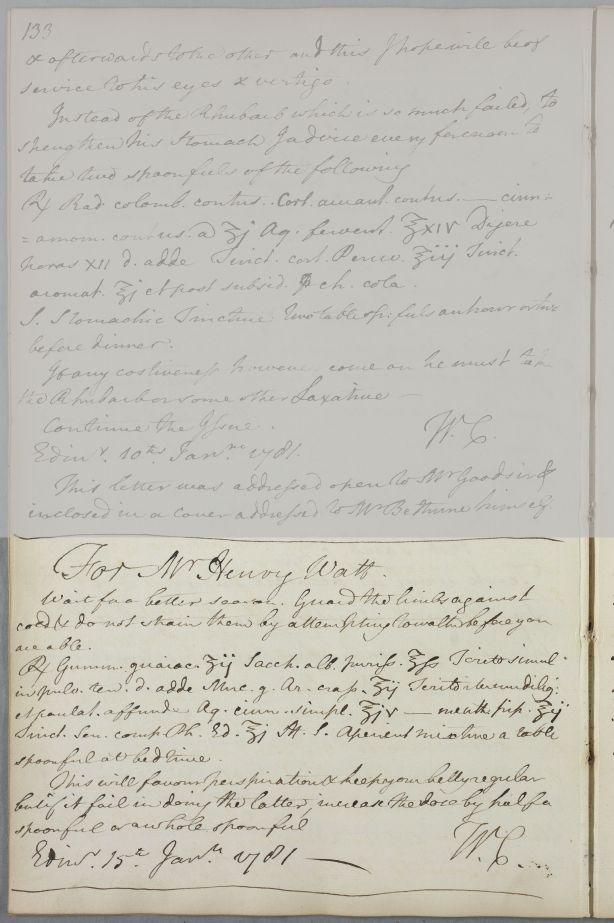 133
& afterwards to the other and this I hope will be of
service to his eyes & vertigo.
Instead of the Rhubarb which is so much failed, to
strengthen his stomach I advise every forenoon to
take two spoonfuls of the following
℞ Rad. colomb. contus. Cort. aurant. contus. — cinn=
=amom. contus. a ℥j Aq. fervent. ℥XIV Digere
horas XII d. adde Tinct. cort. Peruv. ℥iij Tinct.
aromat. ℥j et post subsid. cola.
S. Stomachic Tincture two tablesp:fuls an hour or two
before dinner.
If any costiveness however come on he must take
the Rhubarb or some other Laxative —
Continue the Issue. W. C.
Edinr. 10th Janry. 1781.
This letter was addressed open to Mr Goodsir &
inclosed in a cover addressed to Mr Bethune himself.
For Mr Henry Watt.
Wait for a better season. Guard the limbs against
cold & do not strain them by attempting to walk before you
are able.
℞ Gumm. guaiac. ʒij Sacch. alb. puriss. ℥ss Terito simul
in pulv. ten. d. adde Muc. g. Ar. crass. ℥ij Terito iterum dilig.
et paulat. affunde Aq. cinn. simpl. ℥jv — menth. pip. ℥ij
Tinct. Sen. comp. Ph. Ed. ℥j St. S. Aperient mixture a table
spoonful at bedtime.
This will favour perspiration & keep your belly regular
but if it fail in doing the latter, increase the dose by half a
spoonful or a whole spoonful
Edinr. 15th Janry. 1781 — W. C.